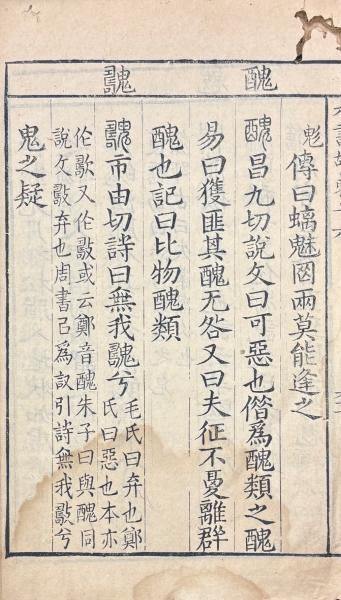 醜
魗
傳曰螭魅罔兩莫能逢之
醜昌九切說文曰可惡也偕爲醜類之醜
易曰獲匪其醜无咎又曰夫征不憂離群
醜也記曰比物醜類
魗市由切詩曰無我魗兮
毛氏曰弃也鄭
氏曰惡也本亦
作又作或云鄭音醜朱子曰與醜同
說文弃也周書㠯爲引詩無我兮
鬼之疑